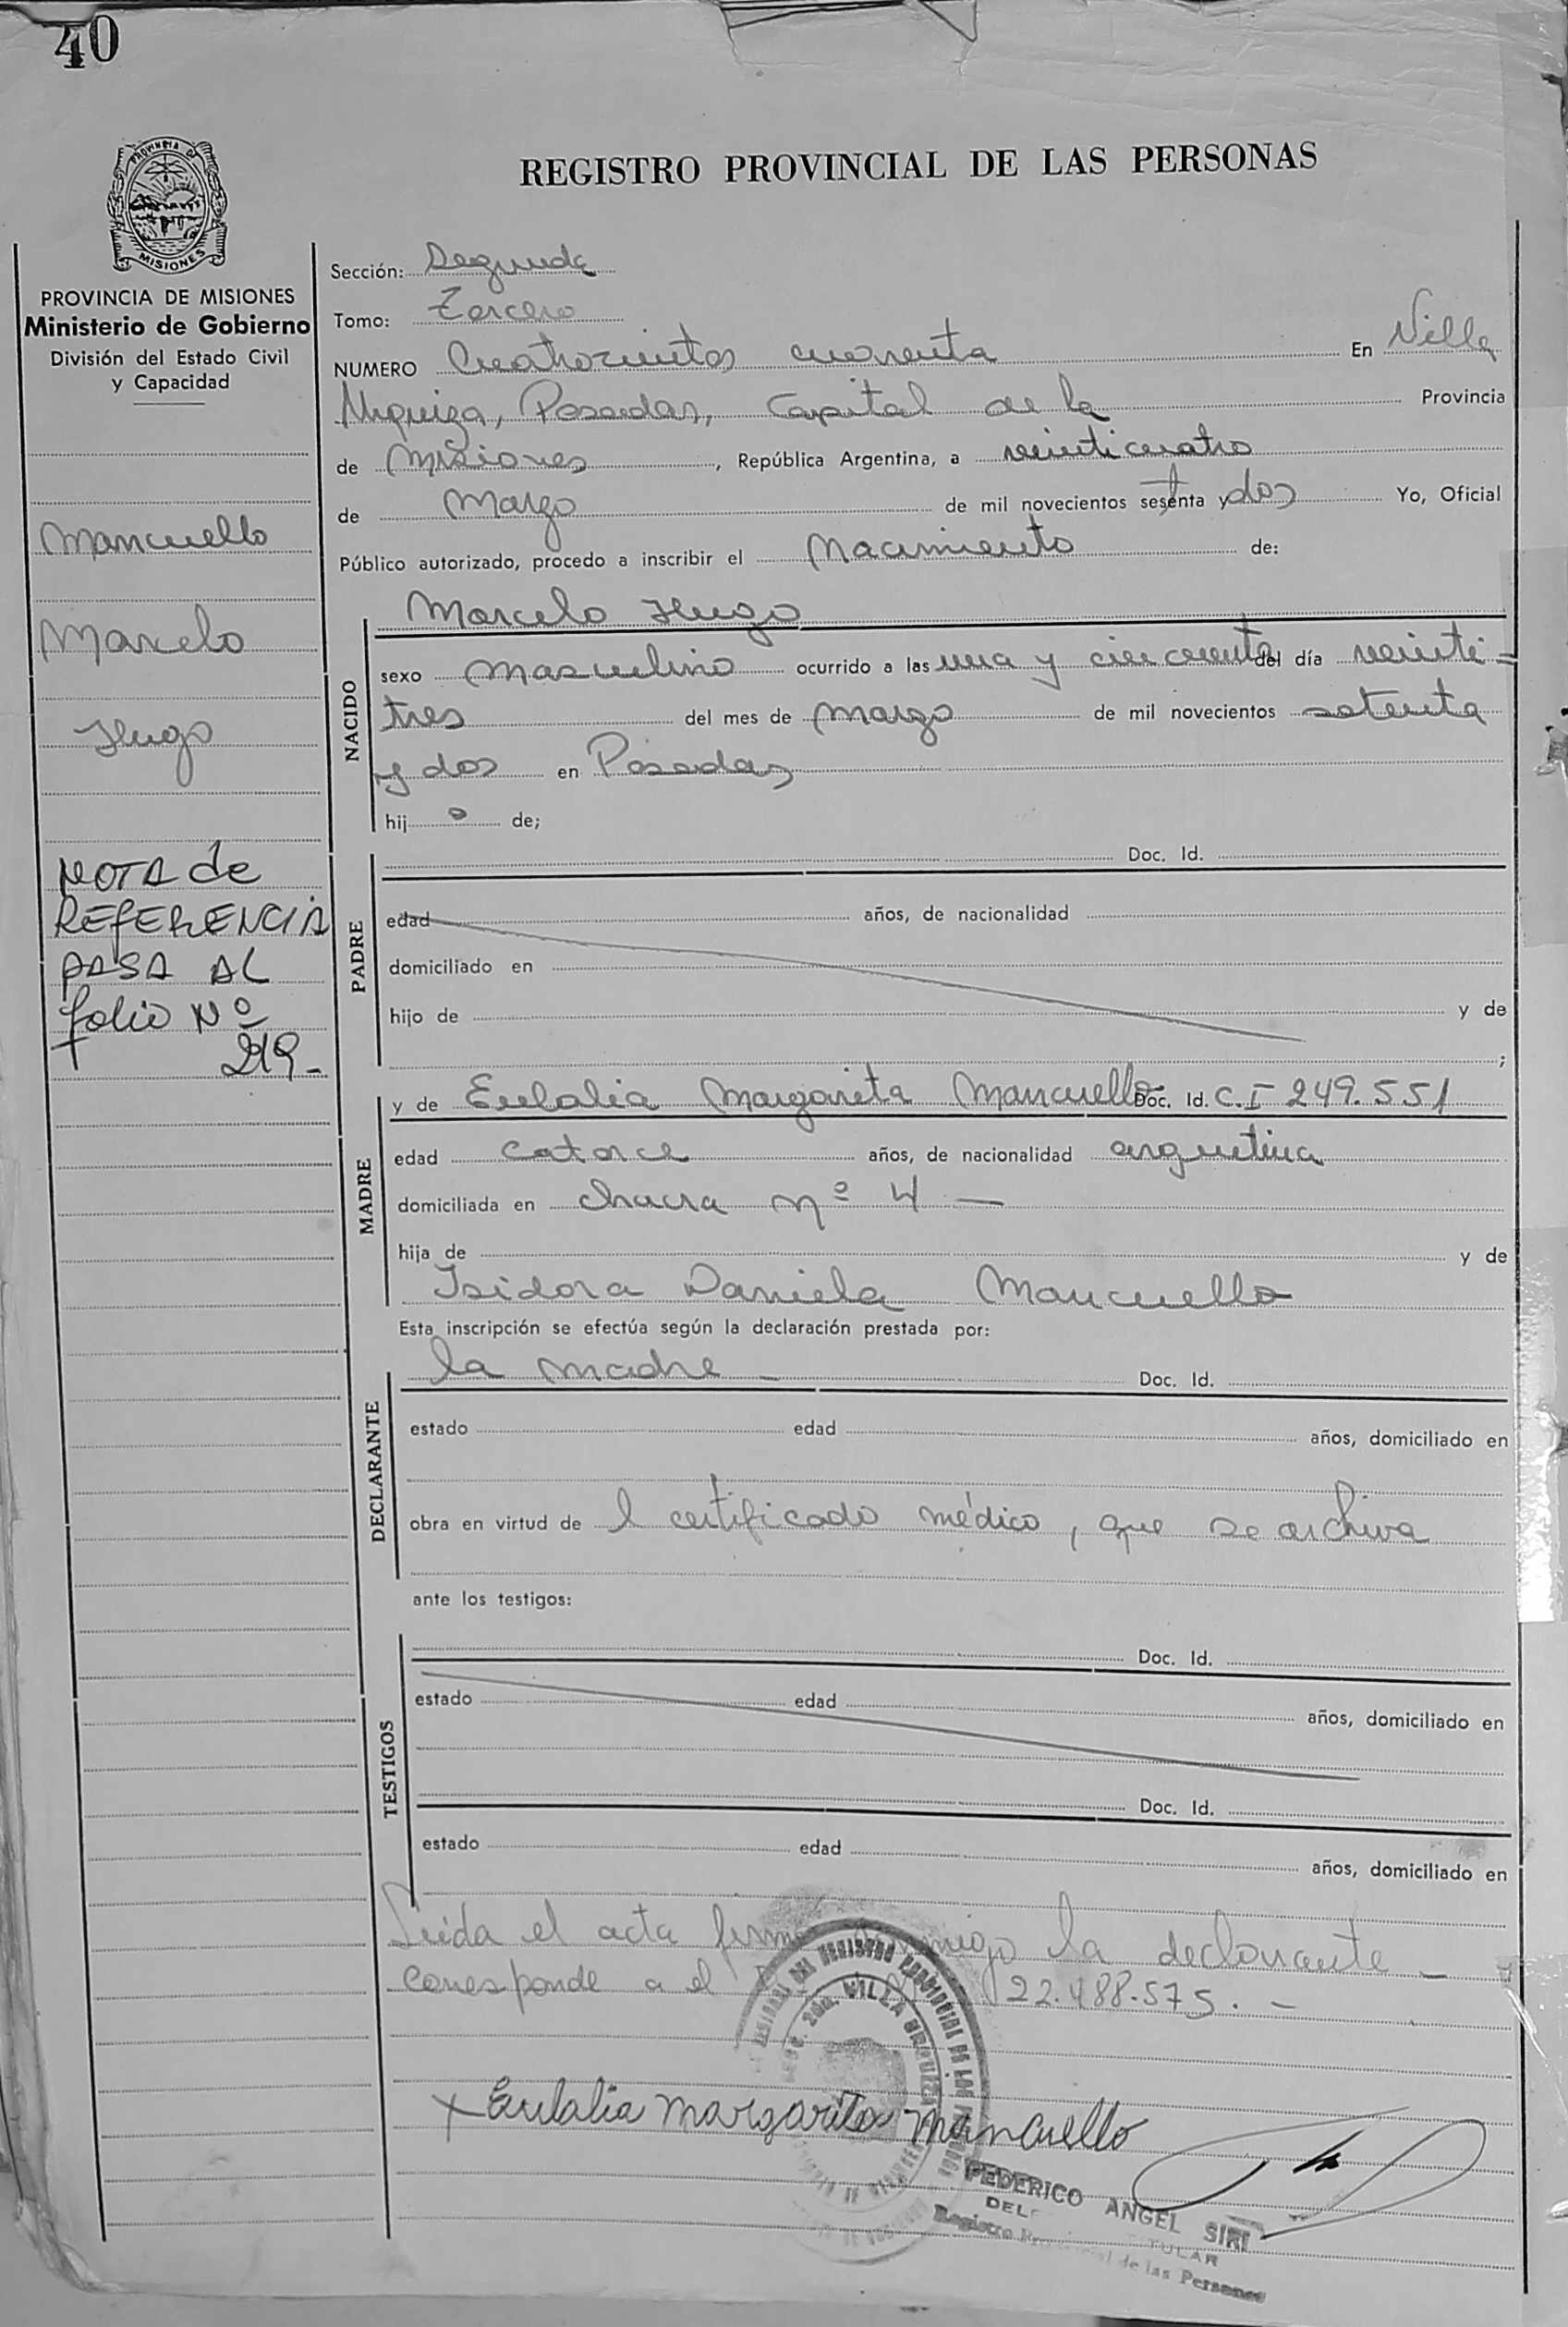 40
PROVINCIA DE
MISIONES
REGISTRO PROVINCIAL DE LAS PERSONAS
PROVINCIA DE MISIONES
Ministerio de Gobierno
División del Estado Civil
y Capacidad
Mancuello
Marcelo
Hugo
NOTA de
REFERENCIA
PASA AL
folio Nº
219-
Sección: Segunda
Tomo: Tercero
NUMERO Cuatrocientos cuarenta En Villa
Urquiza, Posadas, Capital de la Provincia
de Misiones, República Argentina, a veinticuatro
de Marzo de mil novecientos sesenta y dos Yo, Oficial
Público autorizado, procedo a inscribir el Nacimiento de:
NACIDO
Marcelo Hugo
sexo Masculino ocurrido a las una y cincuenta del día veinti-
tres del mes de Marzo de mil novecientos setenta
y dos en Posadas
hij o de;
PADRE
Doc. Id.
edad años, de nacionalidad
domiciliado en
hijo de y de
;
MADRE
y de Eulalia Margarita Mancuello Doc. Id. C.I 249.551
edad catorce años, de nacionalidad argentina
domiciliada en chacra nº 4 —
hija de y de
Isidora Daniela Mancuello
Esta inscripción se efectúa según la declaración prestada por:
DECLARANTE
la madre - Doc. Id.
estado edad años, domiciliado en
obra en virtud de l certificado médico, que se archiva
ante los testigos:
TESTIGOS
Doc. Id.
estado edad años, domiciliado en
Doc. Id.
estado edad años, domiciliado en
Leida el acta firma conmigo la declarante -
corresponde a el 22.488.575. -
x Eulalia Margarita Mancuello
FEDERICO ANGEL SIRI
TULAR
Registro Provincial de las Personas